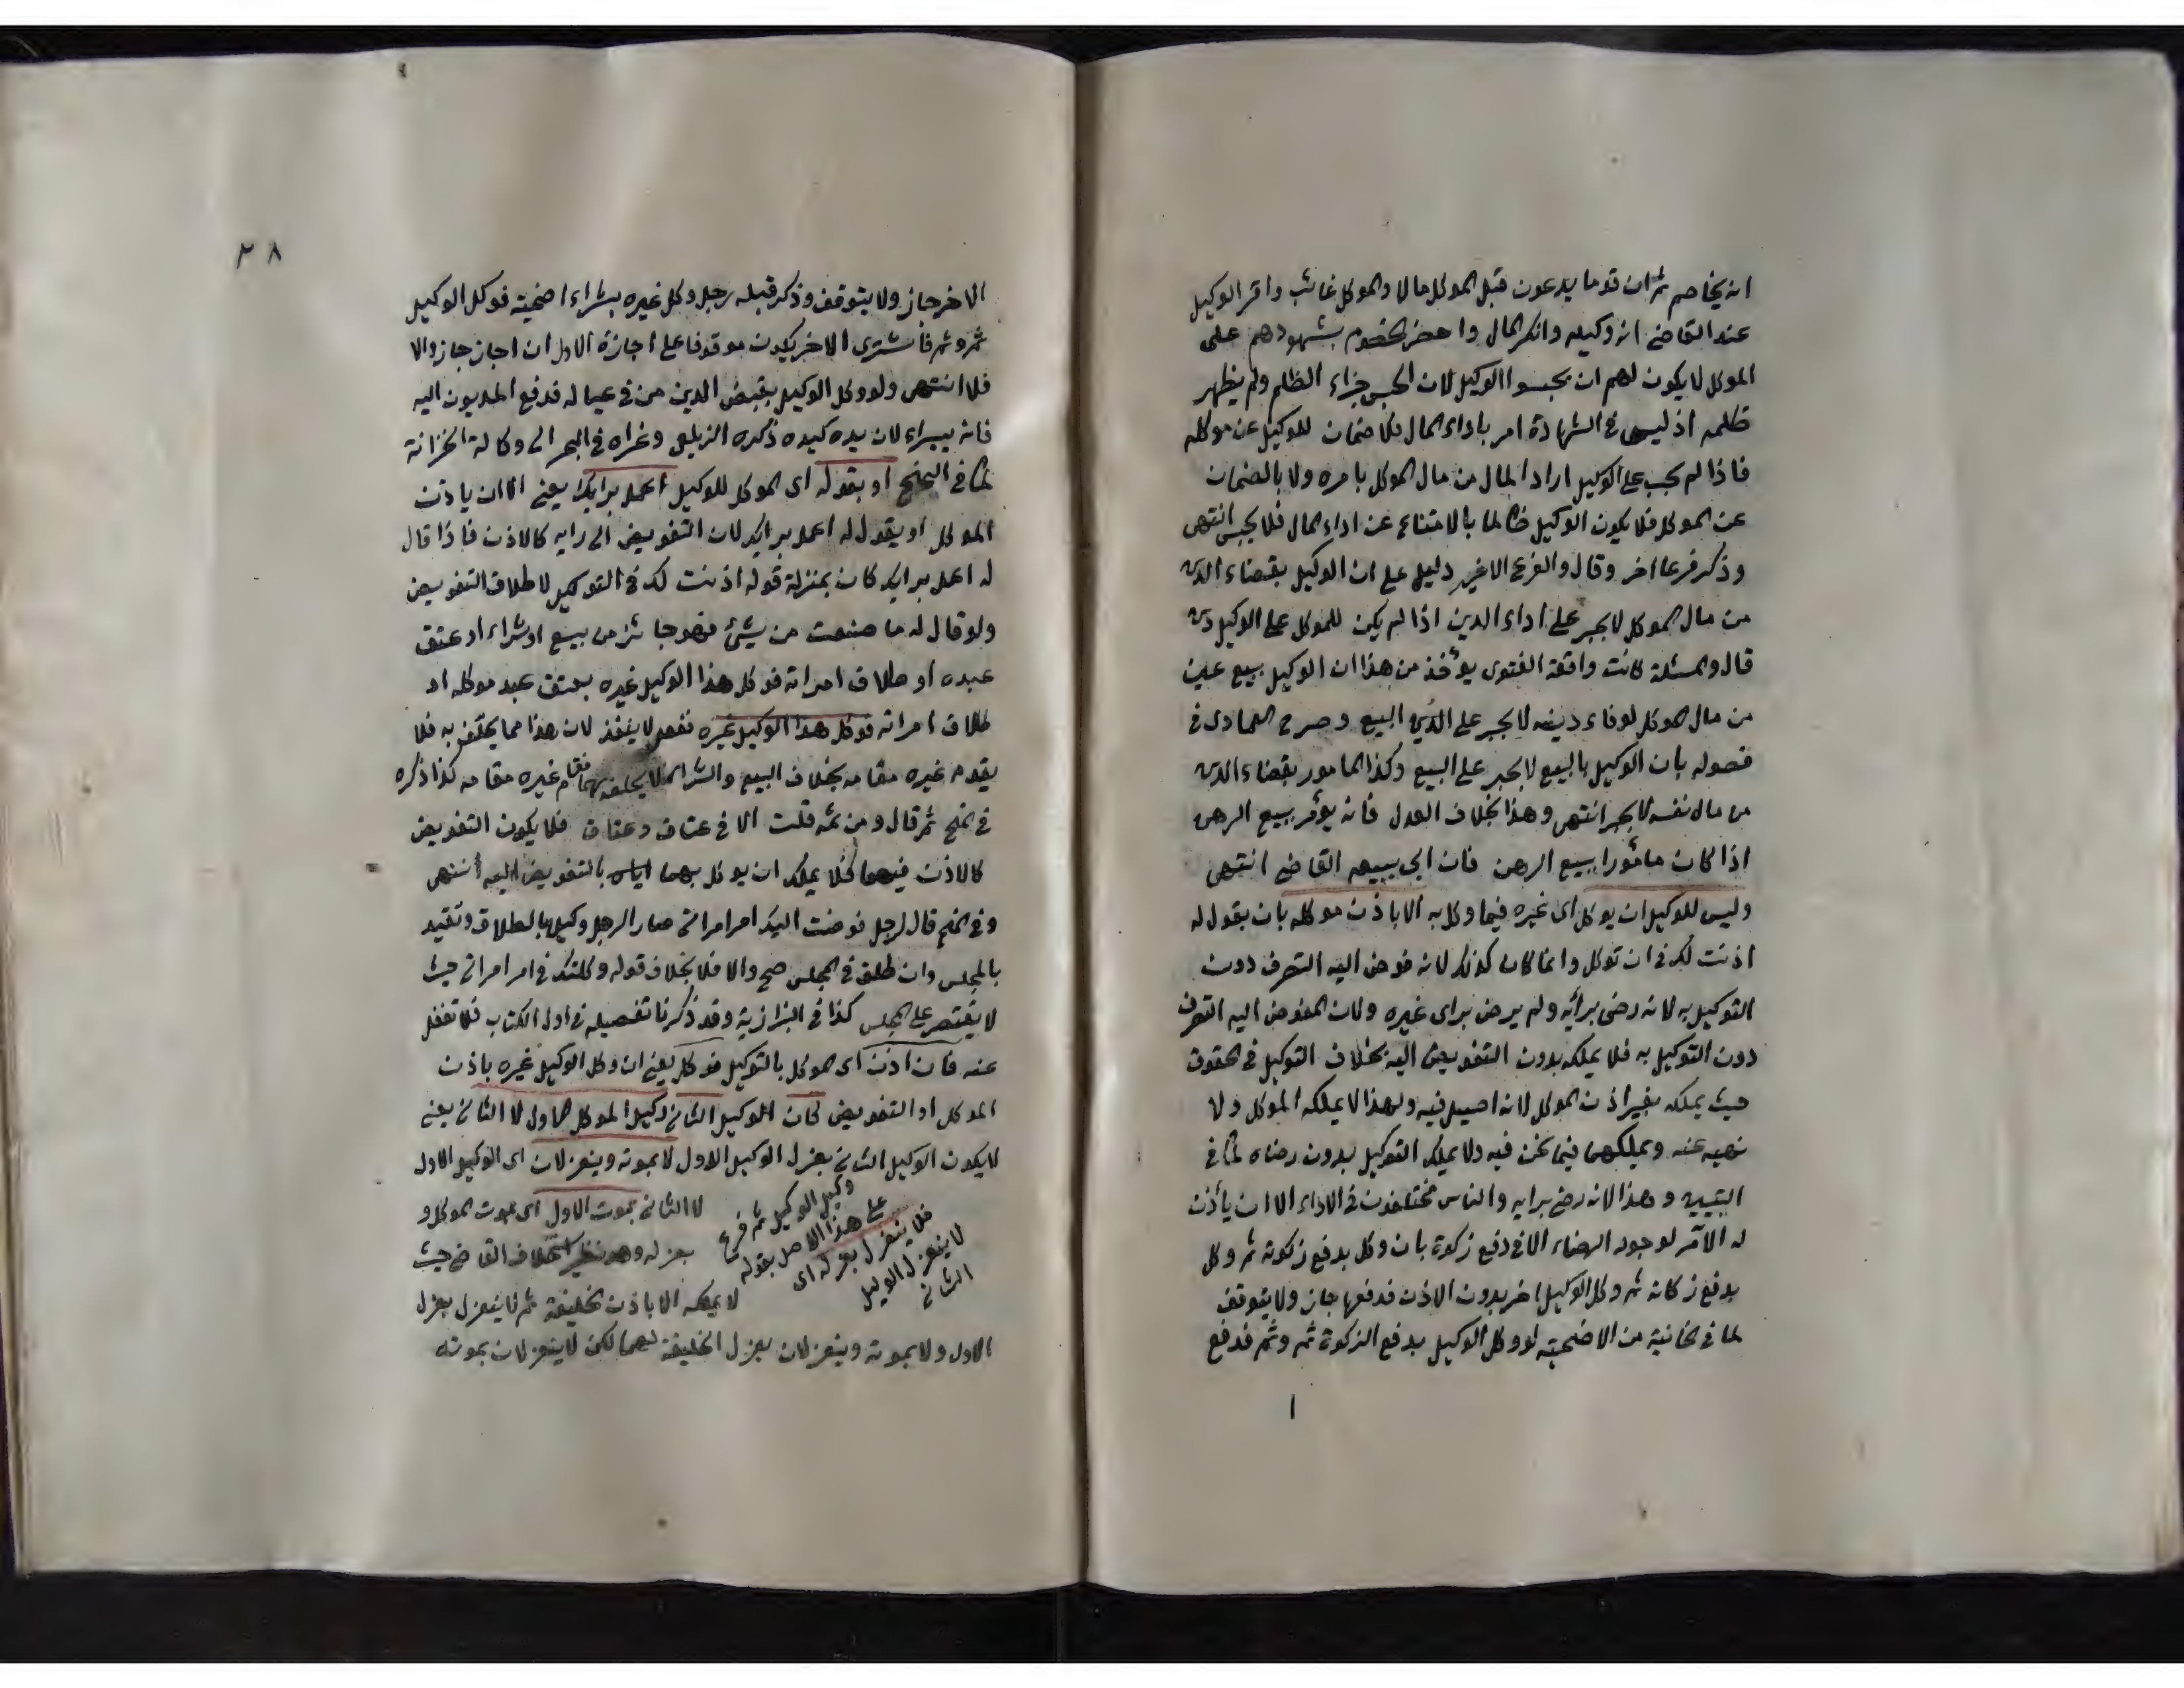 انه يخاصم ثم ان قوما يدعون قبل الموكل مالا والموكل غائب واقر الوكيل
عند القاضى انه وكيله وانكر المال واحضر الخصوم بشهودهم على
الموكل لا يكون لهم ان يحبسوا الوكيل لان الحبس جزاء الظلم ولم يظهر
ظلمه اذ ليس فى الشهادة امر باداء المال فلا ضمان للوكيل عن موكله
فاذا لم يجب على الوكيل اراد المال من مال الموكل بامره ولا بالضمان
عن الموكل فلا يكون الوكيل ظالما بالامتناع عن اداء المال فلا يحبس انتهى
وذكر فرعا اخر وقال والفرع الاخير دليل على ان الوكيل بقضاء الدين
من مال الموكل لا يجبر على اداء الدين اذا لم يكن للموكل على الوكيل دين
قال والمسئلة كانت واقعة الفتوى يؤخذ من هذا ان الوكيل ببيع عين
من مال الموكل لوفاء دينه لا يجبر على البيع وصرح العمادى فى
فصوله بان الوكيل بالبيع لا يجبر على البيع وكذا المامور بقضاء الدين
من مال نفسه لا يجبر انتهى وهذا بخلاف العدل فانه يؤمر ببيع الرهن
اذا كان مأمورا ببيع الرهن فان ابى يبيعه القاضى انتهى
وليس للوكيل ان يوكل اى غيره فيما وكل به الا باذن موكله بان يقول له
اذنت لك فى ان توكل وانما كان كذلك لانه فوض اليه التصرف دون
التوكيل به لانه رضى برأيه ولم يرض براى غيره ولان المفوض اليه التصرف
دون التوكيل به فلا يملكه بدون التفويض اليه بخلاف التوكيل فى الحقوق
حيث يملكه بغير اذن الموكل لانه اصيل فيه ولهذا لا يملكه الموكل ولا
نهيه عنه ويملكهى فيما نحن فيه ولا يملك التوكيل بدون رضاه كما فى
التبيين وهذا لانه رضى برايه والناس مختلفون فى الاداء الا ان يأذن
له الآمر لوجود الرضاء الا فى دفع زكوة بان وكل بدفع زكوته ثم وكل
بدفع زكاته ثم وكل الوكيل اخر بدون الاذن فدفعها جاز ولا يتوقف
لما فى الخانية من الاضحية لو وكل الوكيل بدفع الزكوة ثم وثم فدفع
٢٨
الاخر جاز ولا يتوقف وذكر قبله رجل وكل غيره بشراء اضحية فوكل الوكيل
ثم وثم فاشترى الاخر يكون موقوفا على اجازة الاول ان اجاز جاز والا
فلا انتهى ولو وكل الوكيل بقبض الدين من فى عياله فدفع المديون اليه
فانه يبراء لان يده كيده ذكره الزيلعى وعزاه فى البحر الى وكالة الخزانة
كما فى المنح او بقوله اى الموكل للوكيل اعمل برايك يعنى الا ان ياذن
الموكل او يقول له اعمل برايك لان التفويض الى رايه كالاذن فاذا قال
له اعمل برايك كان بمنزلة قوله اذنت لك فى التوكيل لاطلاق التفويض
ولو قال له ما صنعت من شيئ فهو جائز من بيع او شراء او عتق
عبده او طلاق امراته فوكل هذا الوكيل غيره بعتق عبد موكله او
طلاق امراته فوكل هذا الوكيل غيره ففعل لا ينفذ لان هذا مما يحلف به فلا
يقوم غيره مقامه بخلاف البيع والشراء لا يحلف بهما فقام غيره مقامه كذا ذكره
فى المنح ثم قال ومن ثمه قلت الا فى عتاق وعتاق فلا يكون التفويض
كالاذن فيهما فلا يملك ان يوكل بهما اياه بالتفويض اليه انتهى
وفى المنح قال لرجل فوضت اليك امر امراتى صار الرجل وكيلا بالطلاق وتقيد
بالمجلس وان طلق فى المجلس صح والا فلا بخلاف قوله وكلتك فى امر امراتى حيث
لا يقتصر على المجلس كذا فى البزازية وقد ذكرنا تفصيله فى اول الكتاب فلا تغفل
عنه فان اذن اى الموكل بالتوكيل فوكل يعنى ان وكل الوكيل غيره باذن
الموكل او التفويض كان الوكيل الثانى وكيل الموكل الاول لا الثانى يعنى
لا يكون الوكيل الثانى بعزل الوكيل الاول لا بموته وينعزلان اى الوكيل الاول
وكيل الوكيل ثم فرع
على هذا الاصل بقوله
فلا ينعزل بعزله اى
لا ينعزل الوكيل
الثانى
لا الثانى بموت الاول اى بموت الموكل و
بعزله وهو نظير استخلاف القاضى حيث
لا يملكه الا باذن الخليفة ثم لا ينعزل بعزل
الاول ولا بموته وينعزلان بعزل الخليفة لهما لكن لا ينعزلان بموته